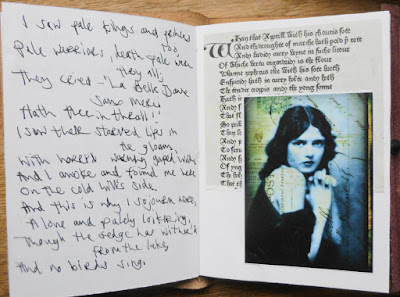 I saw pale kings and princes
too,
Pale warriors, death pale were
they all;
They cried - "La Belle Dame
Sans Merci
Hath thee in thrall!"
I saw their starved lips in
the gloam,
With horrid warning gaped wide,
And I awoke and found me here
On the cold hill's side.
And this is why I sojourn here,
Alone and palely loitering,
Though the sedge has wither'd
from the lake
And no birds sing.
Whan that Apryll with his shouris sote
And the droughte of marche hath percid the rote
And badid euery veyne in suche licour
Of whiche vertu engendrid is the flour
Whanne zephyrus eke with his sote breth
Enspirid hath in euery holte and heth
The tendir croppis and the yong sonne
Hath